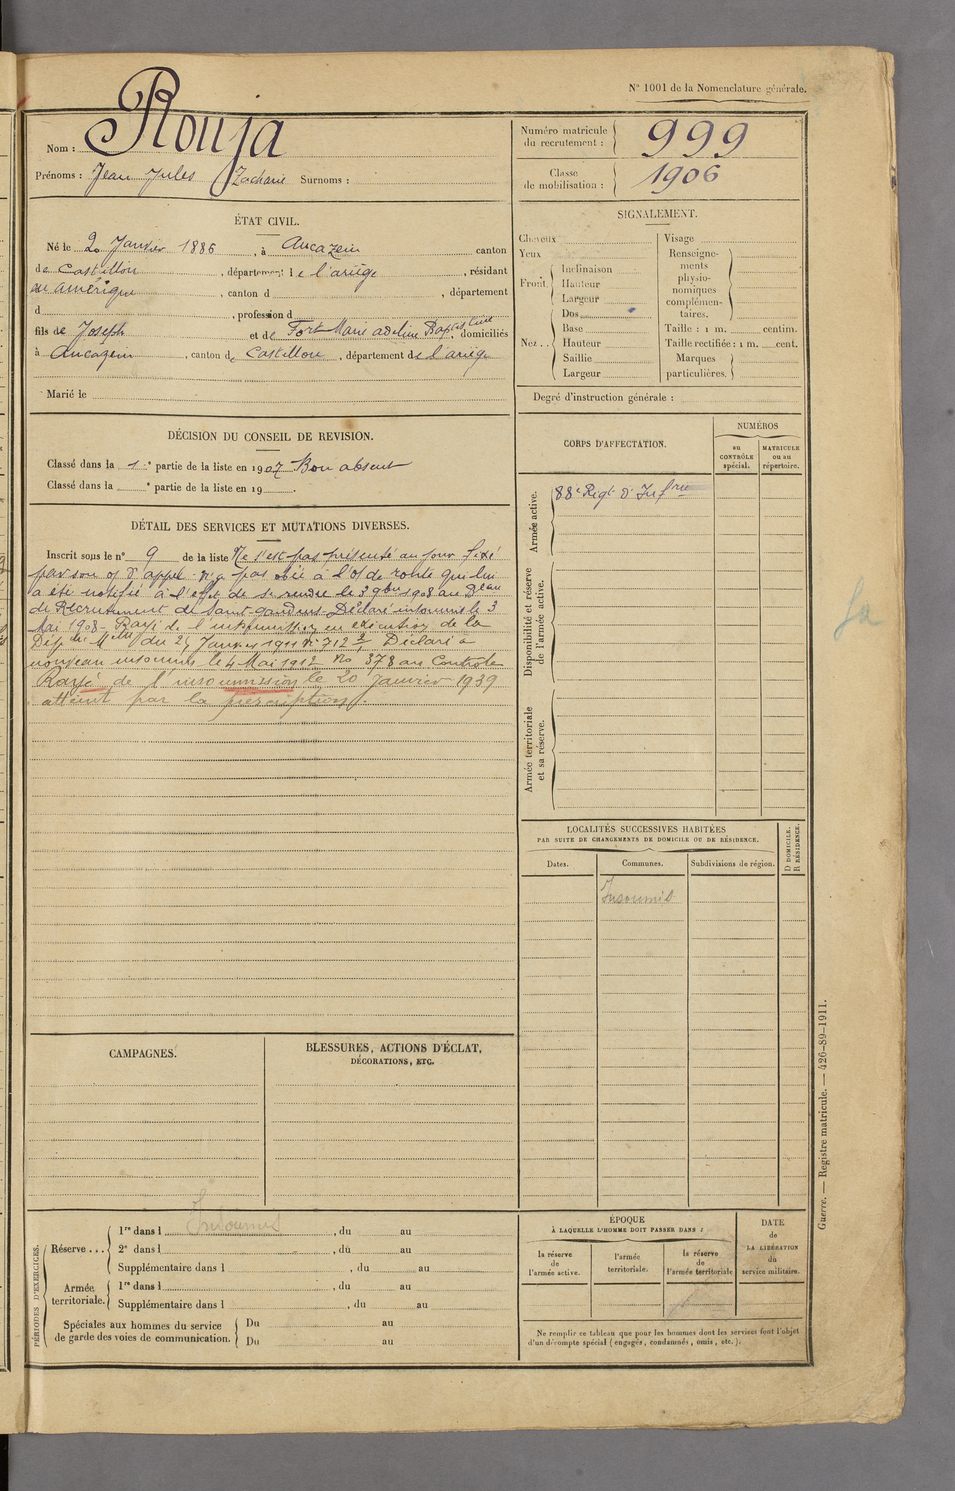 N° 1001 de la Nomenclature générale.
Nom : Rouja
Prénoms : Jean Jules Zacharie Surnoms :
Numéro matricule du recrutement : 999
Classe de mobilisation : 1906
ÉTAT CIVIL.
Né le 20 Janvier 1886, à Aucazein canton
de Castillon, département de l'ariège, résidant
en amérique, canton d , département
d , profession d
fils de Joseph et de Fort Marie adeline Baptistine, domiciliés
à Aucazein, canton de Castillon, département de l'ariège
Marié le
SIGNALEMENT.
Cheveux
Yeux
Front. Inclinaison
Hauteur
Largeur
Nez .. Dos
Base
Hauteur
Saillie
Largeur
Visage
Renseignements physionomiques complémentaires.
Taille : 1 m. centim.
Taille rectifiée : 1 m. cent.
Marques particulières.
Degré d'instruction générale :
DÉCISION DU CONSEIL DE REVISION.
Classé dans la 1e partie de la liste en 1907 Bon absent
Classé dans la e partie de la liste en 19 .
CORPS D'AFFECTATION.
NUMÉROS
au CONTRÔLE spécial.
MATRICULE ou au répertoire.
Armée active.
88e Regt d'Infrie
Disponibilité et réserve de l'armée active.
Armée territoriale et sa réserve.
DÉTAIL DES SERVICES ET MUTATIONS DIVERSES.
Inscrit sous le n° 9 de la liste Ne s'est pas présenté au jour fixé
par son O/ d'appel. N'a pas obéi à l'O/ de route qui lui
a été notifié à l'effet de se rendre le 3 au Beau
de Recrutement de Saint-gaudens. Déclaré insoumis le 3
Mai 1908. Rayé de l'insoumission en exécution de la
Dép. Mlle du 25 Janvier 1911 N° 712 Déclaré à
nouveau insoumis le 4 Mai 1912 No 378 au Contrôle
Rayé de l'insoumission le 20 Janvier 1939
atteint par la prescription.
LOCALITÉS SUCCESSIVES HABITÉES
PAR SUITE DE CHANGEMENTS DE DOMICILE OU DE RÉSIDENCE.
Dates.
Communes.
Subdivisions de région.
D DOMICILE.
R RÉSIDENCE.
Insoumis
CAMPAGNES.
BLESSURES, ACTIONS D'ÉCLAT,
DÉCORATIONS, ETC.
PÉRIODES D'EXERCICES.
Réserve ... 1re dans l Insoumis , du au
2e dans l , du au
Supplémentaire dans l , du au
Armée territoriale. 1re dans l , du au
Supplémentaire dans l , du au
Spéciales aux hommes du service
de garde des voies de communication. Du au
Du au
ÉPOQUE
À LAQUELLE L'HOMME DOIT PASSER DANS :
la réserve de l'armée active.
l'armée territoriale.
la réserve de l'armée territoriale
DATE de LA LIBÉRATION du service militaire.
Ne remplir ce tableau que pour les hommes dont les services font l'objet
d'un décompte spécial (engagés, condamnés, omis, etc.).
Guerre. — Registre matricule. — 426-89-1911.